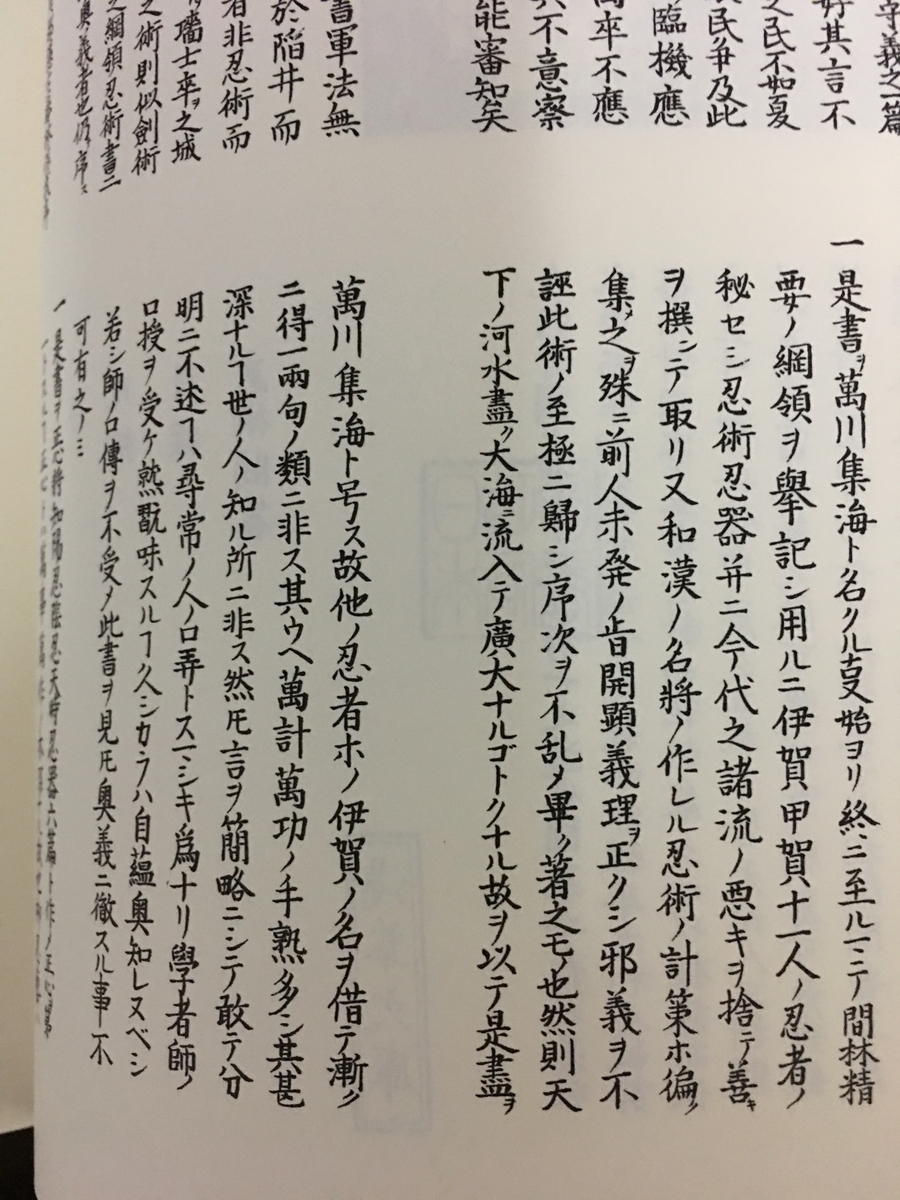 守義之一篇
好其言不
之民不如夏
民争及此
臨機應
卒不應
不意察
能審知矣
書軍法無
於陷井而
者非忍術而
士卒ヲ之城
之術則似劍術
之綱領忍術書ニ
奥義者也仍序
一是書ヲ萬川集海ト名クル叓始ヨリ終ニ至ルマテ間林精
要ノ綱領ヲ舉記シ用ルニ伊賀甲賀十一人ノ忍者ノ
秘セシ忍術忍器并ニ今代之諸流ノ悪キヲ捨テ善キ
ヲ撰ンテ取リ又和漢ノ名將ノ作レル忍術ノ計策ホ徧ク
集メ之ヲ殊ニ前人未発ノ旨開顕義理ヲ正クシ邪義ヲ不
誣此術ノ至極ニ歸シ序次ヲ不乱メ畢ク著之モノ也然則天
下ノ河水盡ク大海ニ流入テ廣大ナルゴトクナル故ヲ以テ是盡ヲ
萬川集海ト号ス故他ノ忍者ホノ伊賀ノ名ヲ借テ漸ク
ニ得一兩句ノ類ニ非ス其ウヘ萬計萬功ノ手熟多シ其甚
深ナルヿ世ノ人ノ知ル所ニ非ス然𪜈言ヲ簡略ニシテ敢テ分
明ニ不述ヿハ尋常ノ人ノ口弄トスマシキ爲ナリ學者師ノ
口授ヲ受ケ熟翫味スルヿ久シカラハ自蘊奥知レヌベシ
若シ師ノ口傳ヲ不受メ此書ヲ見𪜈奥義ニ徹スル事不
可有之ノミ
一是書ヲ正將知陽忍陰忍天時忍器六篇ト作ノ正心第